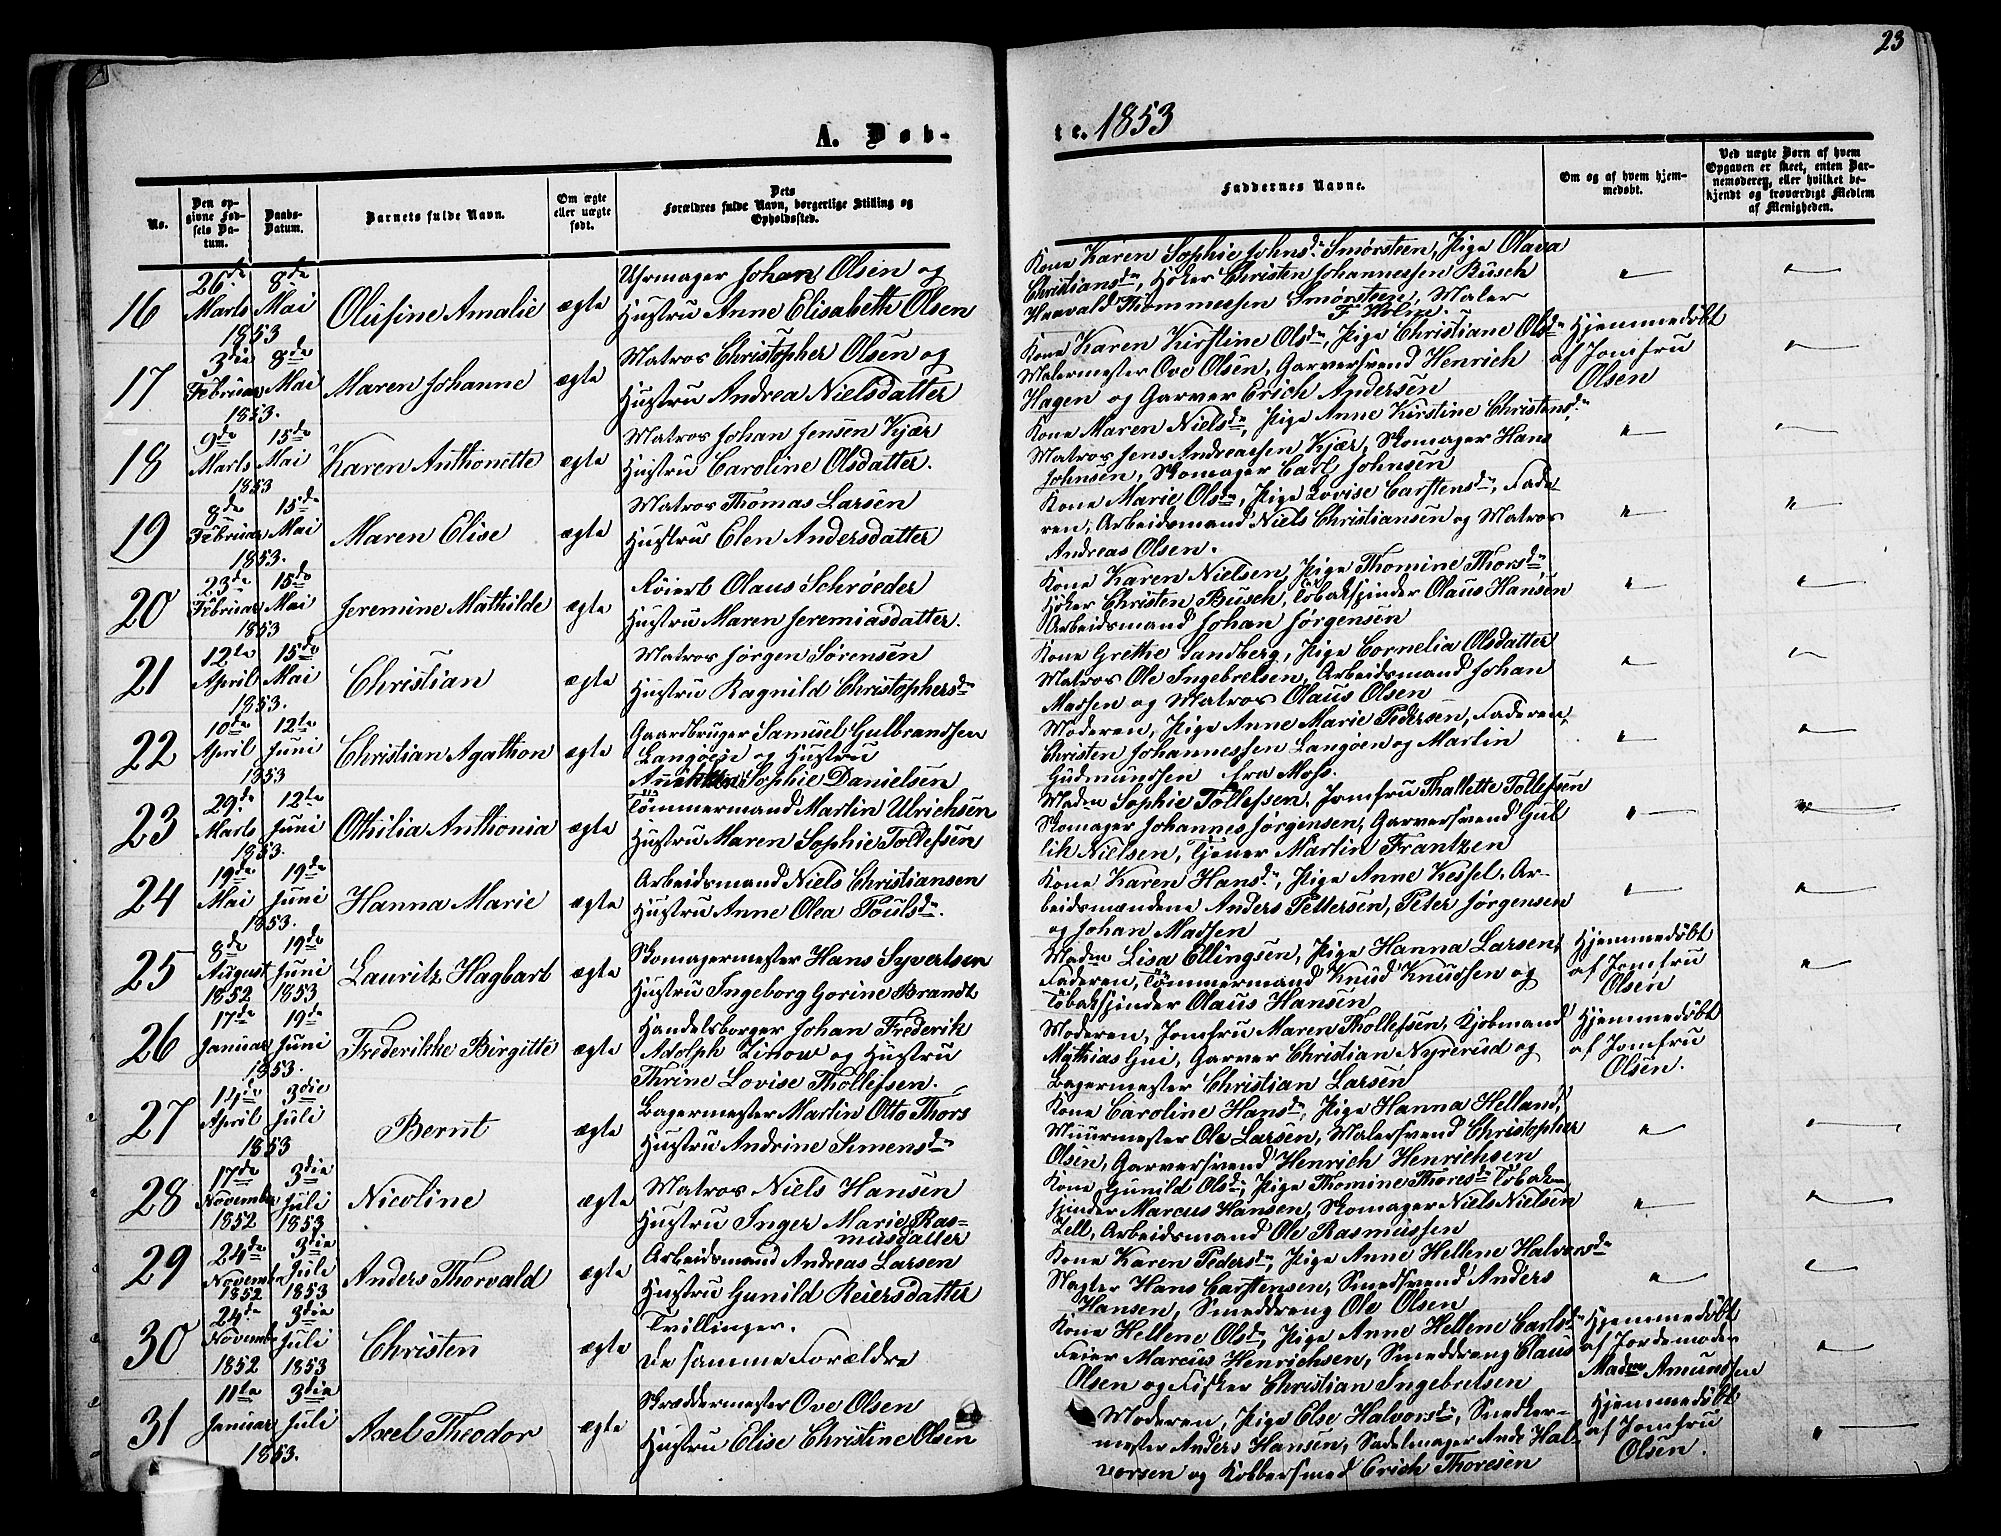 23
A. Døb-
te. 1853
No.
Den op-
givne Fød-
sels Da-
tum.
Daabs-
Datum.
Barnets fulde Navn.
Om ægte
eller uægte
født.
Dets
Forældres fulde Navn, borgerlige Stilling og
Opholdssted.
Faddernes Navne.
Om og af hvem hjem-
medøbt.
Ved uægte Børn af hvem
Opgaven er skeet, enten Bar-
nemoderen, eller hvilket be-
kjendt og troværdigt Medlem
af Menigheden.
16
26de Marts 1853
8de Mai
Olufine Amalie
ægte
Uhrmager Johan Olsen og
Hustru Anne Elisabeth Olsen
Kone Karen Sophie Johnsdn Smørsteen, Pige Olava
Christiansdn, Høker Christen Johannessen Busch
Haavald Thommessen Smørsteen, Maler
F Holm.
17
3die Februar 1853.
8de Mai
Maren Johanne
ægte
Matros Christopher Olsen og
Hustru Andrea Nielsdatter
Kone Karen Kirstine Olsdn, Pige Christiane Olsdn
Malermester Ove Olsen, Garversvend Henrich
Hagen og Garver Erich Andersen
Hjemmedøbt
af Jomfru
Olsen
18
9de Marts 1853
15de Mai
Karen Anthonette
ægte
Matros Johan Jensen Kjær
Hustru Caroline Olsdatter.
Kone Maren Nielsdn, Pige Anne Kirstine Christensdn
Matros Jens Andreassen Kjær, Skomager Hans
Johnsen, Skomager Carl Johnsen
19
8de Februar 1853.
15de Mai
Maren Elise
ægte
Matros Thomas Larsen
Hustru Elen Andersdatter
Kone Marie Olsdn, Pige Lovise Carstensdn, Fade-
ren, Arbeidsmand Niels Christiansen og Matros
Andreas Olsen.
20
23de Februar 1853
15de Mai
Jeremine Mathilde
ægte
Røiert Olaus Schrøeder
Hustru Maren Jeremiasdatter.
Kone Karen Nielsen, Pige Thomine Thorsdn,
Høker Christen Busch, Tobakspinder Olaus Hansen
Arbeidsmand Johan Jørgensen
21
12te April 1853.
15de Mai
Christian
ægte
Matros Jørgen Sørensen
Hustru Ragnild Christophersdn
Kone Grethe Sandberg, Pige Cornelia Olsdatter
Matros Ole Ingebretsen, Arbeidsmand Johan
Madsen og Matros Olaus Olsen
22
10de April 1853
12te Juni
Christian Agathon
ægte
Gaardbruger Samuel Gulbrandsen
Langøen og Hustru
Sophie Danielsen
Moderen, Pige Anne Marie Pedersen, Faderen,
Christen Johannessen Langøen og Martin
Gudmundsen fra Moss.
23
29de Marts 1853.
12te Juni
Othilia Anthonia
ægte
Tømmermand Martin Ulrichsen
Hustru Maren Sophie Tollefsen
Madm Sophie Tollefsen, Jomfru Thallette Tollefsen
Skomager Johannes Jørgensen, Garversvend Gul
lik Nielsen, Tjener Martin Frantzen
24
19de Mai 1853.
19de Juni
Hanna Marie
ægte
Arbeidsmand Niels Christiansen
Hustru Anne Olea Poulsdn.
Kone Karen Hansdn, Pige Anne Kessel, Ar-
beidsmændene Anders Pettersen, Peter Jørgensen
og Johan Madsen
25
8de August 1852
19de Juni 1853
Lauritz Hagbart
ægte
Skomagermester Hans Syvertsen
Hustru Ingeborg Gorine Brandt
Madm Lisa Ellingsen, Pige Hanna Larsen,
Faderen, Tømmermand Knud Knudsen og
Tobakspinder Olaus Hansen
Hjemmedøbt
af Jomfru
Olsen
26
17de Januar 1853.
19de Juni
Frederikke Birgitte
ægte
Handelsborger Johan Frederik
Adolph Linow og Hustru
Thrine Lovise Thollefsen.
Moderen, Jomfru Maren Thollefsen, Kjøbmand
Mathias Gui, Garver Christian Nyrerud og
Bagermester Christian Larsen
Hjemmedøbt
af Jomfru
Olsen.
27
14de April 1853
3die Juli
Bernt
ægte
Bagermester Martin Otto Thors
Hustru Andrine Simensdn
Kone Caroline Hansdn, Pige Hanna Helland,
Muurmester Ole Larsen, Malersvend Christopher
Olsen, Garversvend Henrich Henrichsen
28
17de November 1852
3die Juli 1853
Nicoline
ægte
Matros Niels Hansen
Hustru Inger Marie Ras-
musdatter
Kone Gunild Olsdn, Pige Thomine Thoresdn Tobak-
spinder Marcus Hansen, Skomager Niels Nielsen
Zell, Arbeidsmand Ole Rasmussen
29
24de November 1852
3die Juli 1853
Anders Thorvald
ægte
Arbeidsmand Andreas Larsen
Hustru Gunild Reiersdatter
Kone Karen Pedersdn, Pige Anne Hellene Halvorsdn
Slagter Hans Carstensen, Smedsvend Anders
Hansen, Smeddreng Ole Olsen
30
24de November 1852
3die Juli 1853
Christen
ægte
Tvillinger.
De samme Forældre
Kone Hellene Olsdn, Pige Anne Hellene Carlsdn
Feier Marcus Henrichsen, Smeddreng Claus
Olsen og Fisker Christian Ingebretsen
Hjemmedøbt
af Jordemoder
Madm Amundsen
31
11te Januar 1853.
3die Juli
Axel Theodor
ægte
Skræddermester Ove Olsen
Hustru Elise Christine Olsen
Moderen, Pige Else Halvorsdn, Snedker-
mester Anders Hansen, Sadelmager Andr Hal-
vorsen og Kobbersmed Erich Thoresen
Hjemmedøbt
af Jomfru
Olsen.